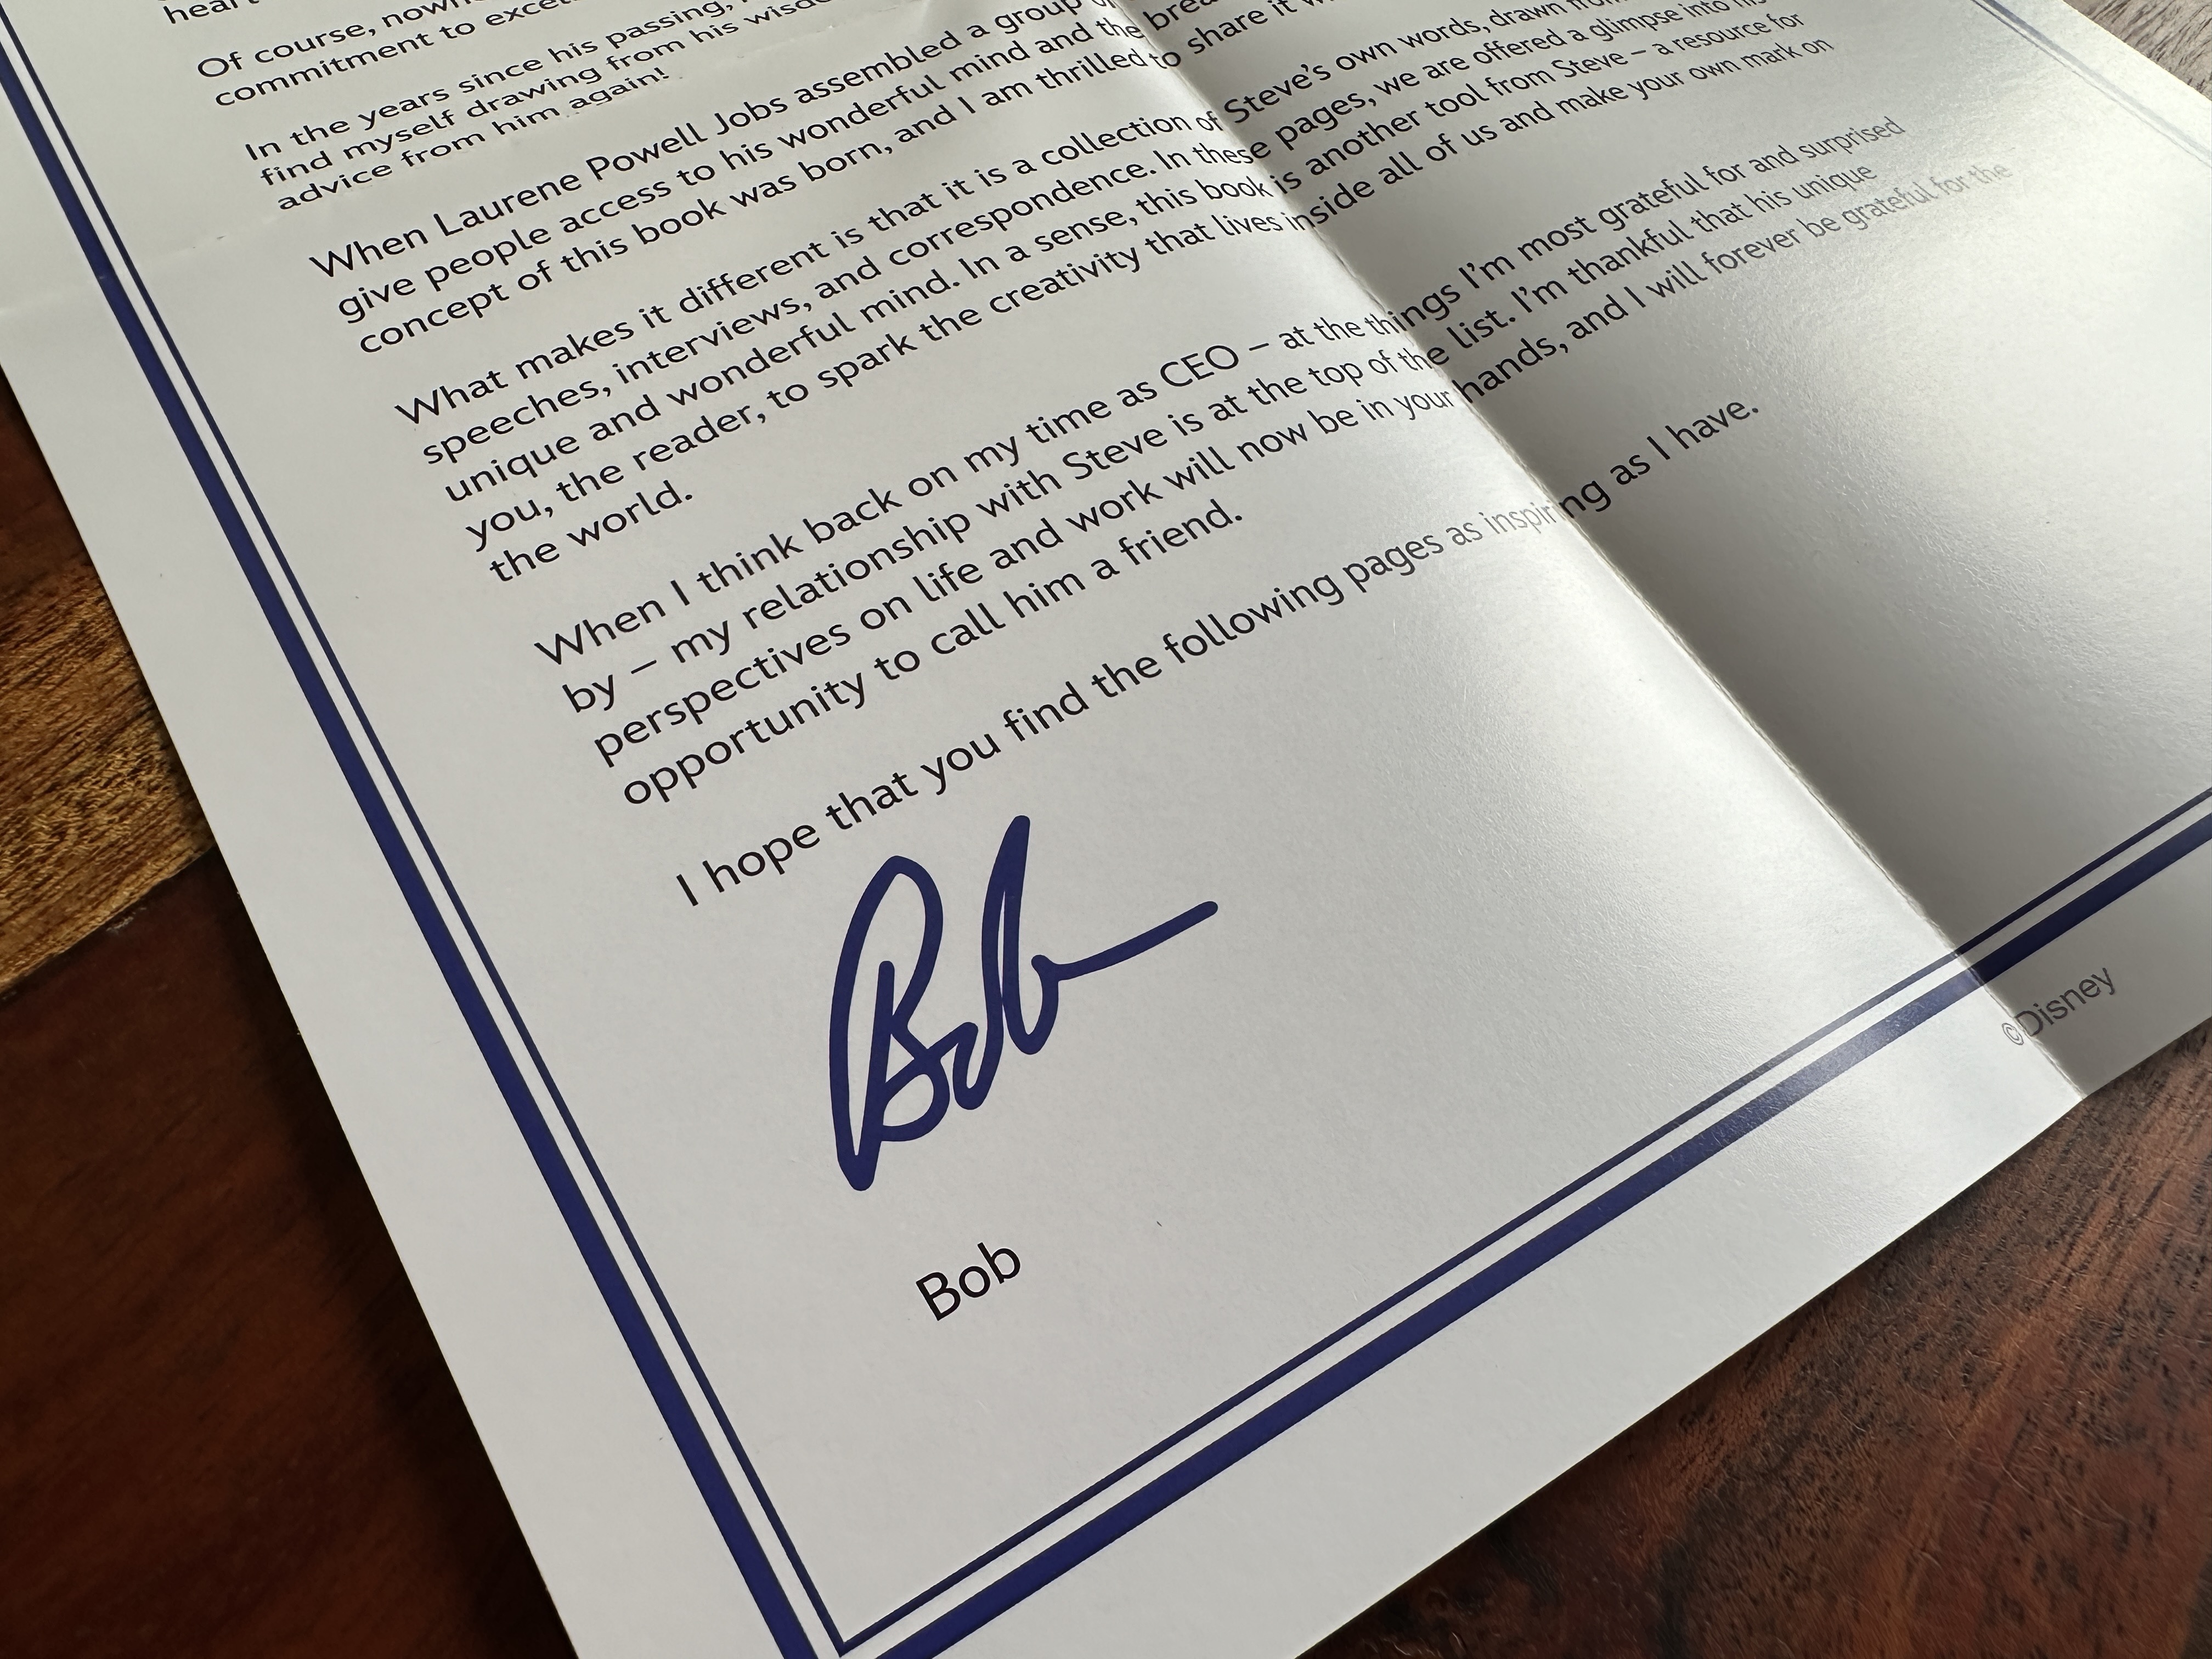 heart
Of course, nowh
commitment to excell
In the years since his passing,
find myself drawing from his wisdo
advice from him again!
When Laurene Powell Jobs assembled a group of
give people access to his wonderful mind and the brea
concept of this book was born, and I am thrilled to share it w
What makes it different is that it is a collection of Steve's own words, drawn from
speeches, interviews, and correspondence. In these pages, we are offered a glimpse into his
unique and wonderful mind. In a sense, this book is another tool from Steve – a resource for
you, the reader, to spark the creativity that lives inside all of us and make your own mark on
the world.
When I think back on my time as CEO – at the things I'm most grateful for and surprised
by – my relationship with Steve is at the top of the list. I'm thankful that his unique
perspectives on life and work will now be in your hands, and I will forever be grateful for the
opportunity to call him a friend.
I hope that you find the following pages as inspiring as I have.
Bob
Bob
©Disney